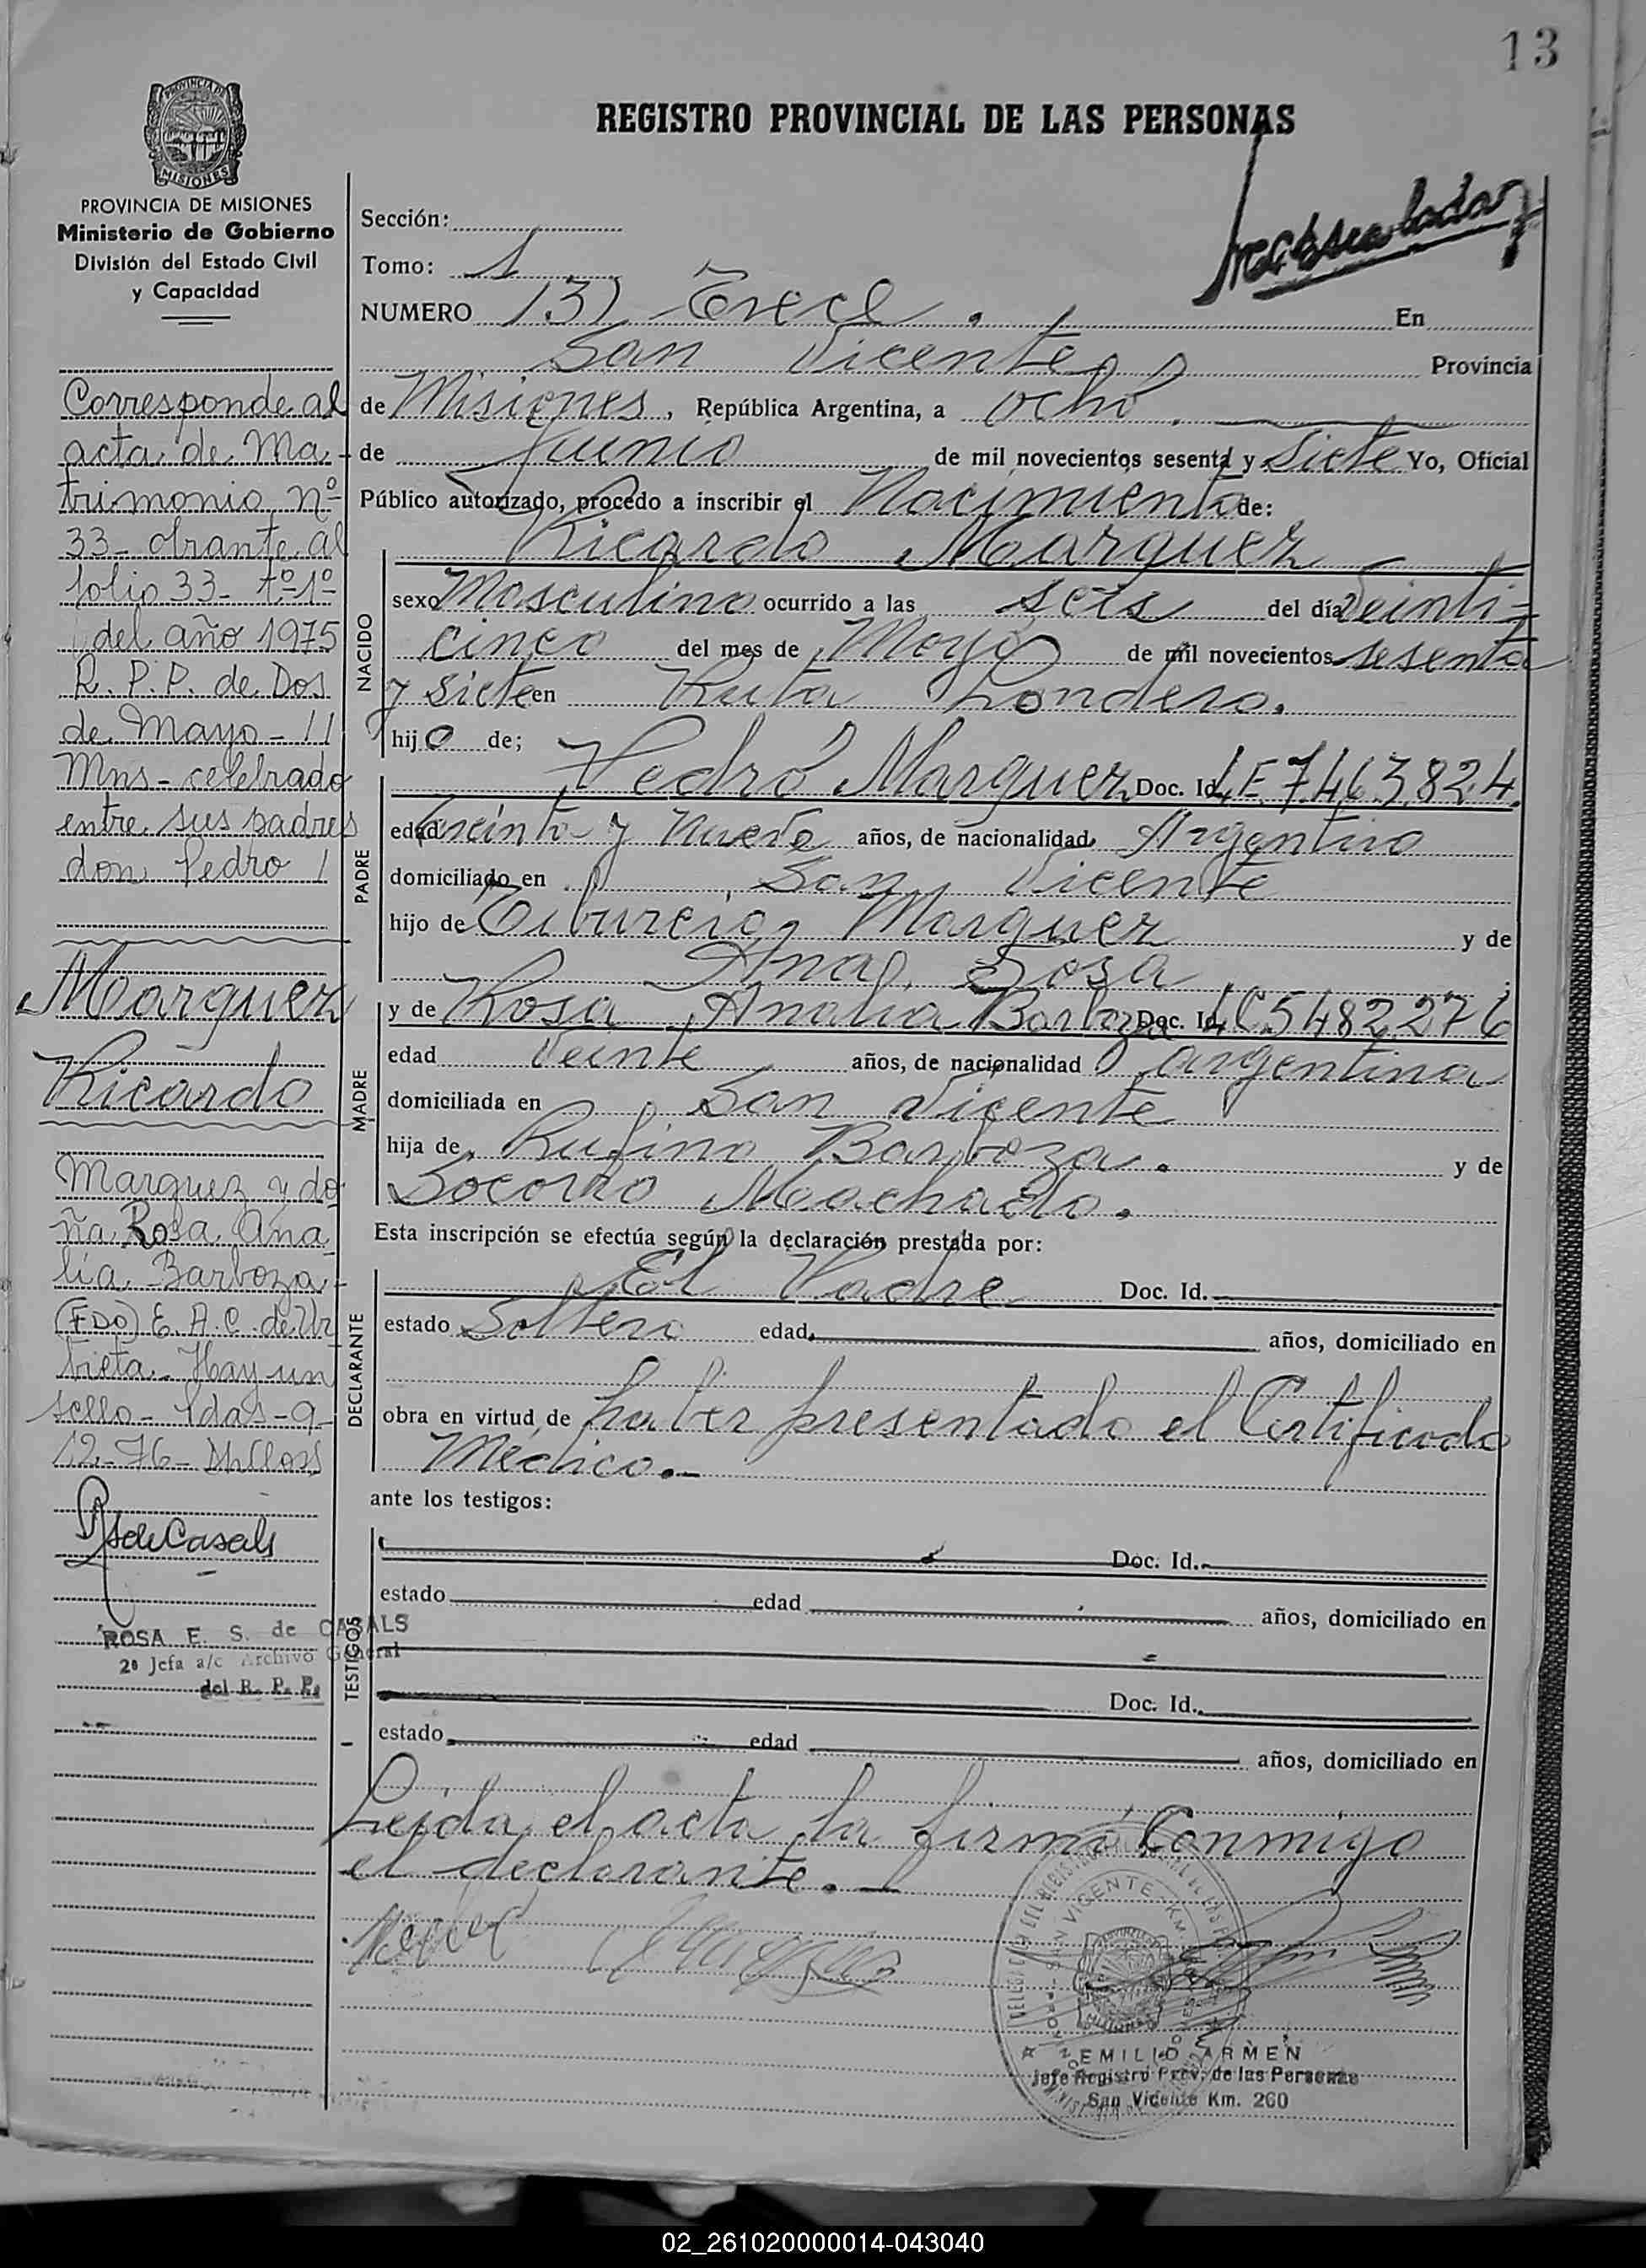 13
REGISTRO PROVINCIAL DE LAS PERSONAS
PROVINCIA DE MISIONES
MISIONES
PROVINCIA DE MISIONES
Ministerio de Gobierno
División del Estado Civil
y Capacidad
Corresponde al
acta de Ma-
trimonio nº
33- obrante al
folio 33- tº-1º-
del año 1975
R. P. P. de Dos
de Mayo-
Mns- celebrado
entre sus padres
don Pedro /
Marquez
Ricardo
Marquez y do
ña Rosa Ana
lía Barboza-
(FDO) E. A. C. de Ur
bieta. Hay un
sello- Pdas-9-
12-76-
de Casals
ROSA E. S. de CASALS
2º Jefa a/c Archivo General
del R. P. P.
Sección:
Tomo: 1
NUMERO 13) Trece. En
San Vicente, Provincia
de Misiones, República Argentina, a ocho
de Junio de mil novecientos sesenta y siete Yo, Oficial
Público autorizado, procedo a inscribir el Nacimiento de:
Ricardo Marquez
NACIDO
sexo Masculino ocurrido a las seis del día Veinti-
cinco del mes de Mayo de mil novecientos sesenta
y siete en Ruta Londero.
hijo de;
PADRE
Pedro Marquez Doc. Id. LE 7.463.824.
edad treinta y nueve años, de nacionalidad Argentino
domiciliado en San Vicente
hijo de Tiburcio Marquez y de
Ana Sosa
MADRE
y de Rosa Analia Barboza Doc. Id. LC 5482276
edad veinte años, de nacionalidad argentina
domiciliada en San Vicente
hija de Rufino Barboza. y de
Socorro Machado.
Esta inscripción se efectúa según la declaración prestada por:
DECLARANTE
El Padre Doc. Id.
estado Soltero edad años, domiciliado en
obra en virtud de haber presentado el Certificado
Médico.-
ante los testigos:
TESTIGOS
Doc. Id.
estado edad años, domiciliado en
Doc. Id.
estado edad años, domiciliado en
Leída el acta la firma conmigo
el declarante.-
SAN VICENTE - KM.
EMILIO ARMEN
Jefe Registro Prov. de las Personas
San Vicente Km. 260
02_261020000014-043040